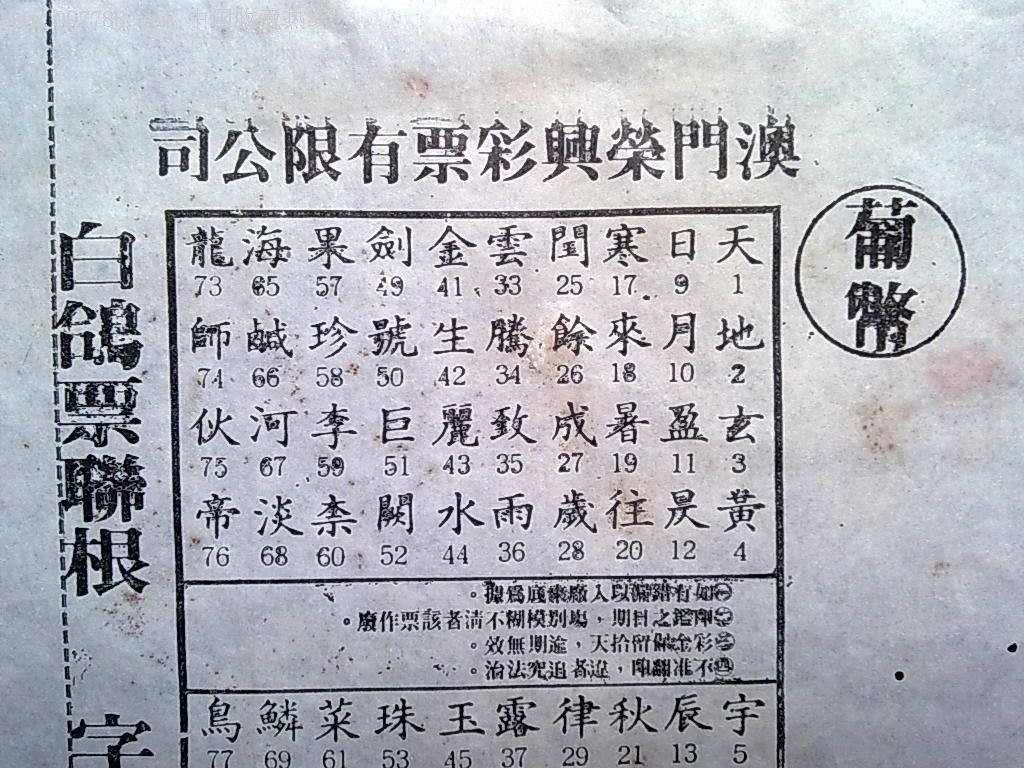 澳門榮興彩票有限公司
葡幣
天 日 寒 閏 雲 金 劍 果 海 龍
1 9 17 25 33 41 49 57 65 73
地 月 來 餘 騰 生 號 珍 鹹 師
2 10 18 26 34 42 50 58 66 74
玄 盈 暑 成 致 麗 巨 李 河 伙
3 11 19 27 35 43 51 59 67 75
黃 昃 往 歲 雨 水 闕 柰 淡 帝
4 12 20 28 36 44 52 60 68 76
㊀如有錯漏以入廠票底爲據。
㊁之日期，塲別模糊不清者該票作廢。
㊂彩金保留拾天，逾期無效。
㊃不准翻印，違者追究法治。
宇 辰 秋 律 露 玉 珠 菜 鱗 鳥
5 13 21 29 37 45 53 61 69 77
白鴿票聯根 字